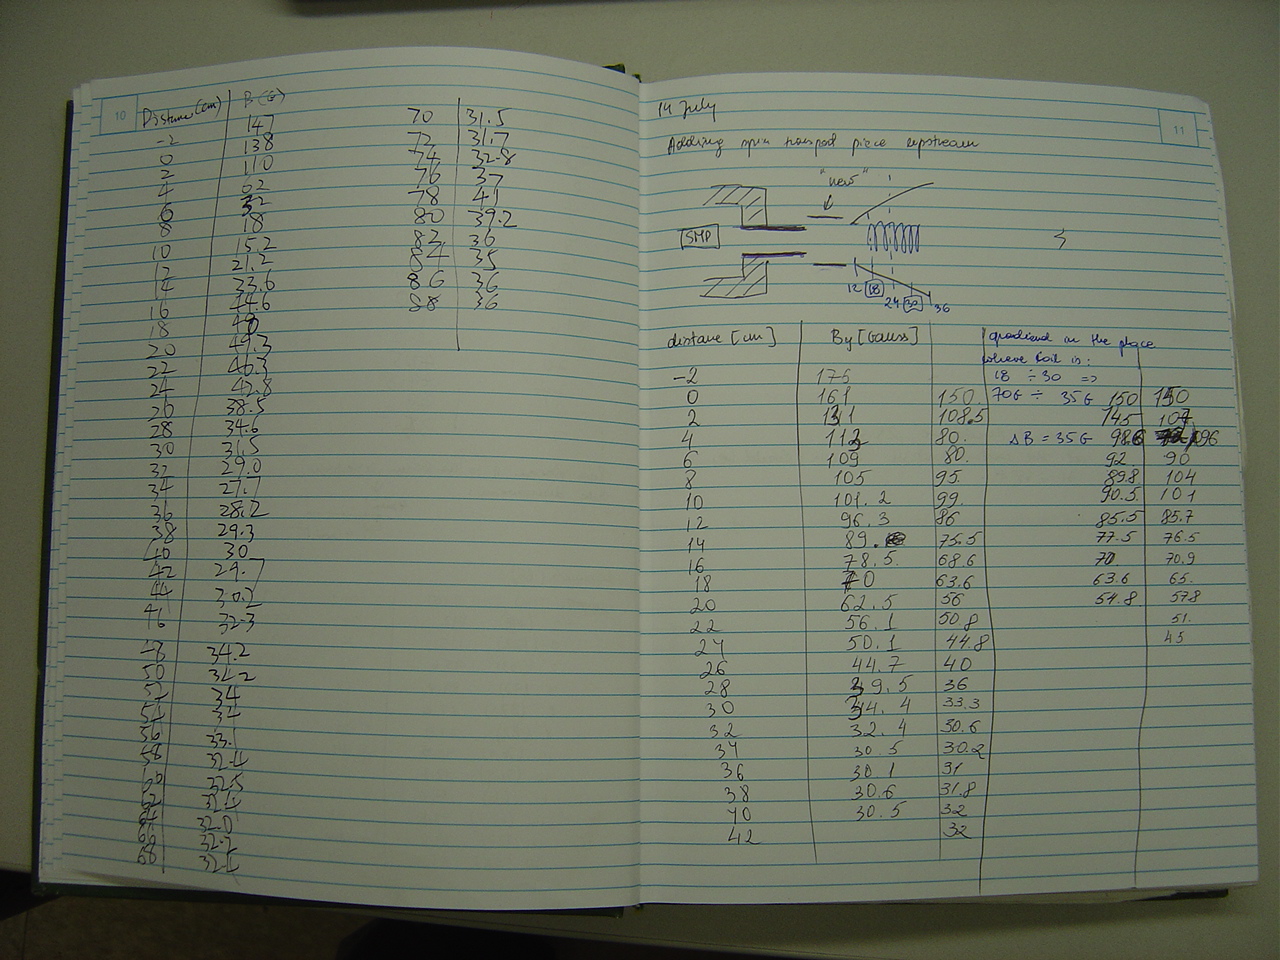 10
Distance (cm) B (G)
-2 147
0 138
2 110
4 62
6 32
8 18
10 15.2
12 21.2
14 33.6
16 44.6
18
20 49.3
22 46.3
24 42.8
26 38.5
28 34.6
30 31.5
32 29.0
34 27.7
36 28.2
38 29.3
40 30
42 29.7
44 30.2
46 32.3
48 34.2
50 34.2
52 34
54 34
56 33.1
58 32.4
60 32.5
62 32.4
64 32.0
66 32.2
68 32.1
70 31.5
72 31.7
74 32.8
76 37
78 41
80 39.2
82 36
84 35
86 36
88 36
11
14 July
Adding spin transport piece upstream
"new"
SMP
12 18 24 30 36
distance [cm] By [Gauss] gradient in the place
where coil is:
-2 176 18 ÷ 30 =>
0 161 150. 70G ÷ 35G 150 150
2 131 108.5 145 107
4 113 80. ΔB = 35G 98.6 96
6 109 80. 92 90
8 105 95. 89.8 104
10 101.2 99. 90.5 101
12 96.3 86 85.5 85.7
14 89. 75.5 77.5 76.5
16 78.5 68.6 70 70.9
18 70 63.6 63.6 65.
20 62.5 56 54.8 57.8
22 56.1 50.8 51.
24 50.1 44.8 45
26 44.7 40
28 39.5 36
30 34.4 33.3
32 32.4 30.6
34 30.5 30.2
36 30.1 31
38 30.6 31.8
40 30.5 32
42 32